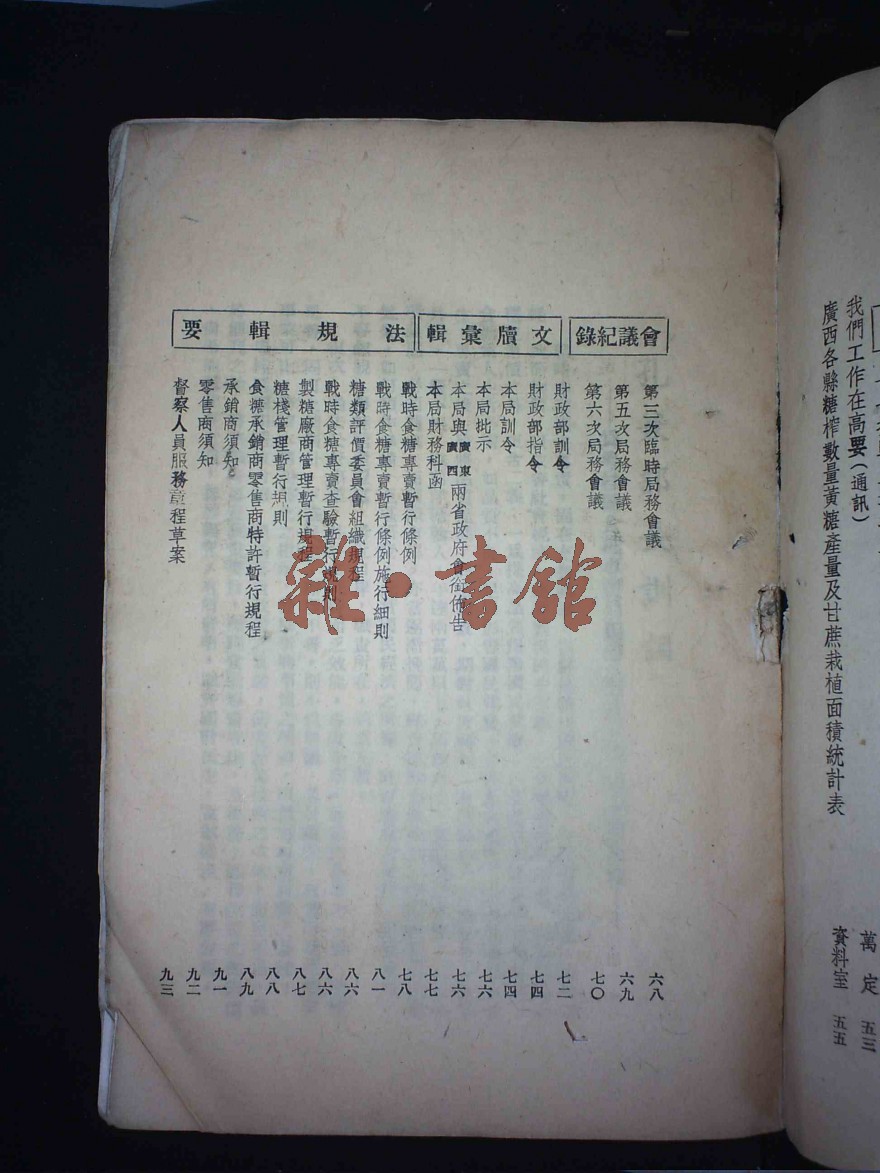 我們工作在高要(通訊) 萬定 五三
廣西各縣糖榨數量黃糖產量及甘蔗栽植面積統計表 資料室 五五
會議紀錄
第三次臨時局務會議 六八
第五次局務會議 六九
第六次局務會議 七〇
文牘彙輯
財政部訓令 七二
財政部指令 七四
本局訓令 七四
本局批示 七六
本局與廣東廣西兩省政府會銜佈告 七六
本局財務科函 七七
法規輯要
戰時食糖專賣暫行條例 七八
戰時食糖專賣暫行條例施行細則 八一
糖類評價委員會組織規程 八六
戰時食糖專賣查驗暫行規則 八六
製糖廠商管理暫行規程 八七
糖棧管理暫行規則 八八
食糖承銷商零售商特許暫行規程 八九
承銷商須知 九一
零售商須知 九二
督察人員服務章程草案 九三
雜·書館